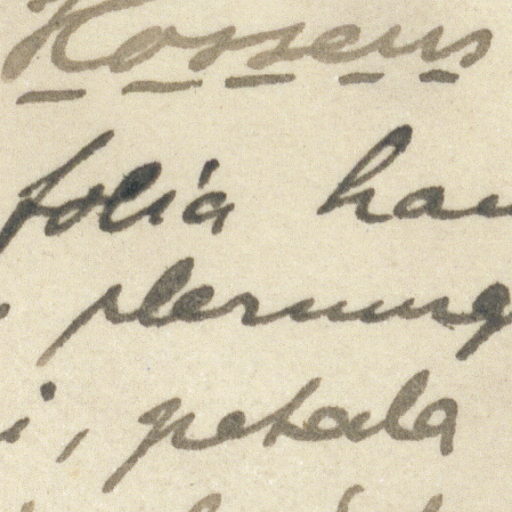 Hossens
folia hau
plerumq
i, petala